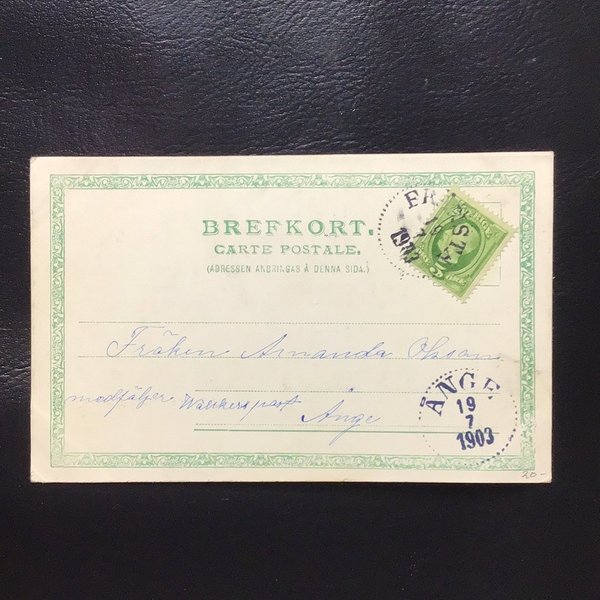 BREFKORT.
CARTE POSTALE.
(ADRESSEN ANBRINGAS Å DENNA SIDA.)
Fröken Amanda Olsson
medföljer
Ånge
ÅNGE
19
7
1903
20-